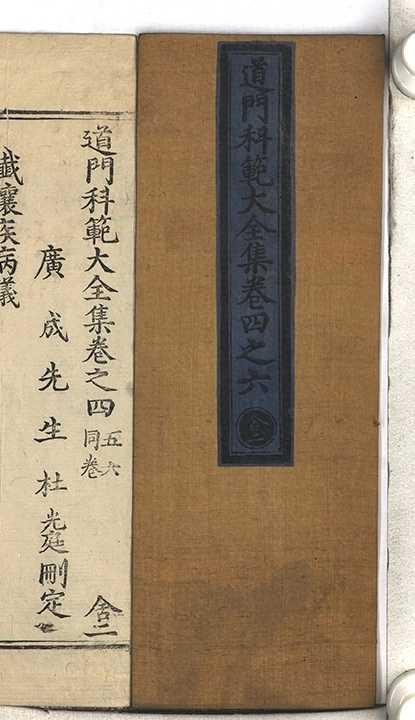 道門科範大全集卷四之六
舍二
道門科範大全集卷之四
五六同卷
舍二
廣成先生杜光庭刪定
讖禳疾病義